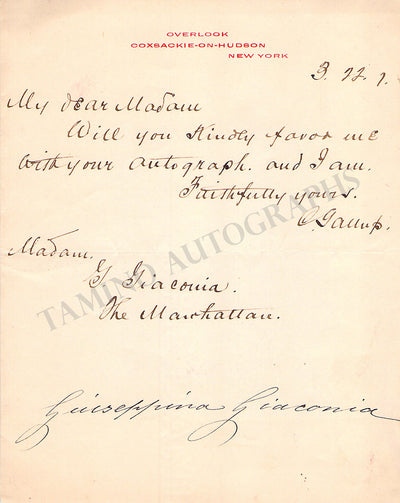 OVERLOOK
COXSACKIE-ON-HUDSON
NEW YORK
3. 22. 7.
My dear Madam
Will you Kindly favor me
with your autograph. and I am.
Faithfully yours.
C. Gallup.
Madam.
G Giaconia.
The Manhattan.
Giuseppina Giaconia
TAMINO AUTOGRAPHS